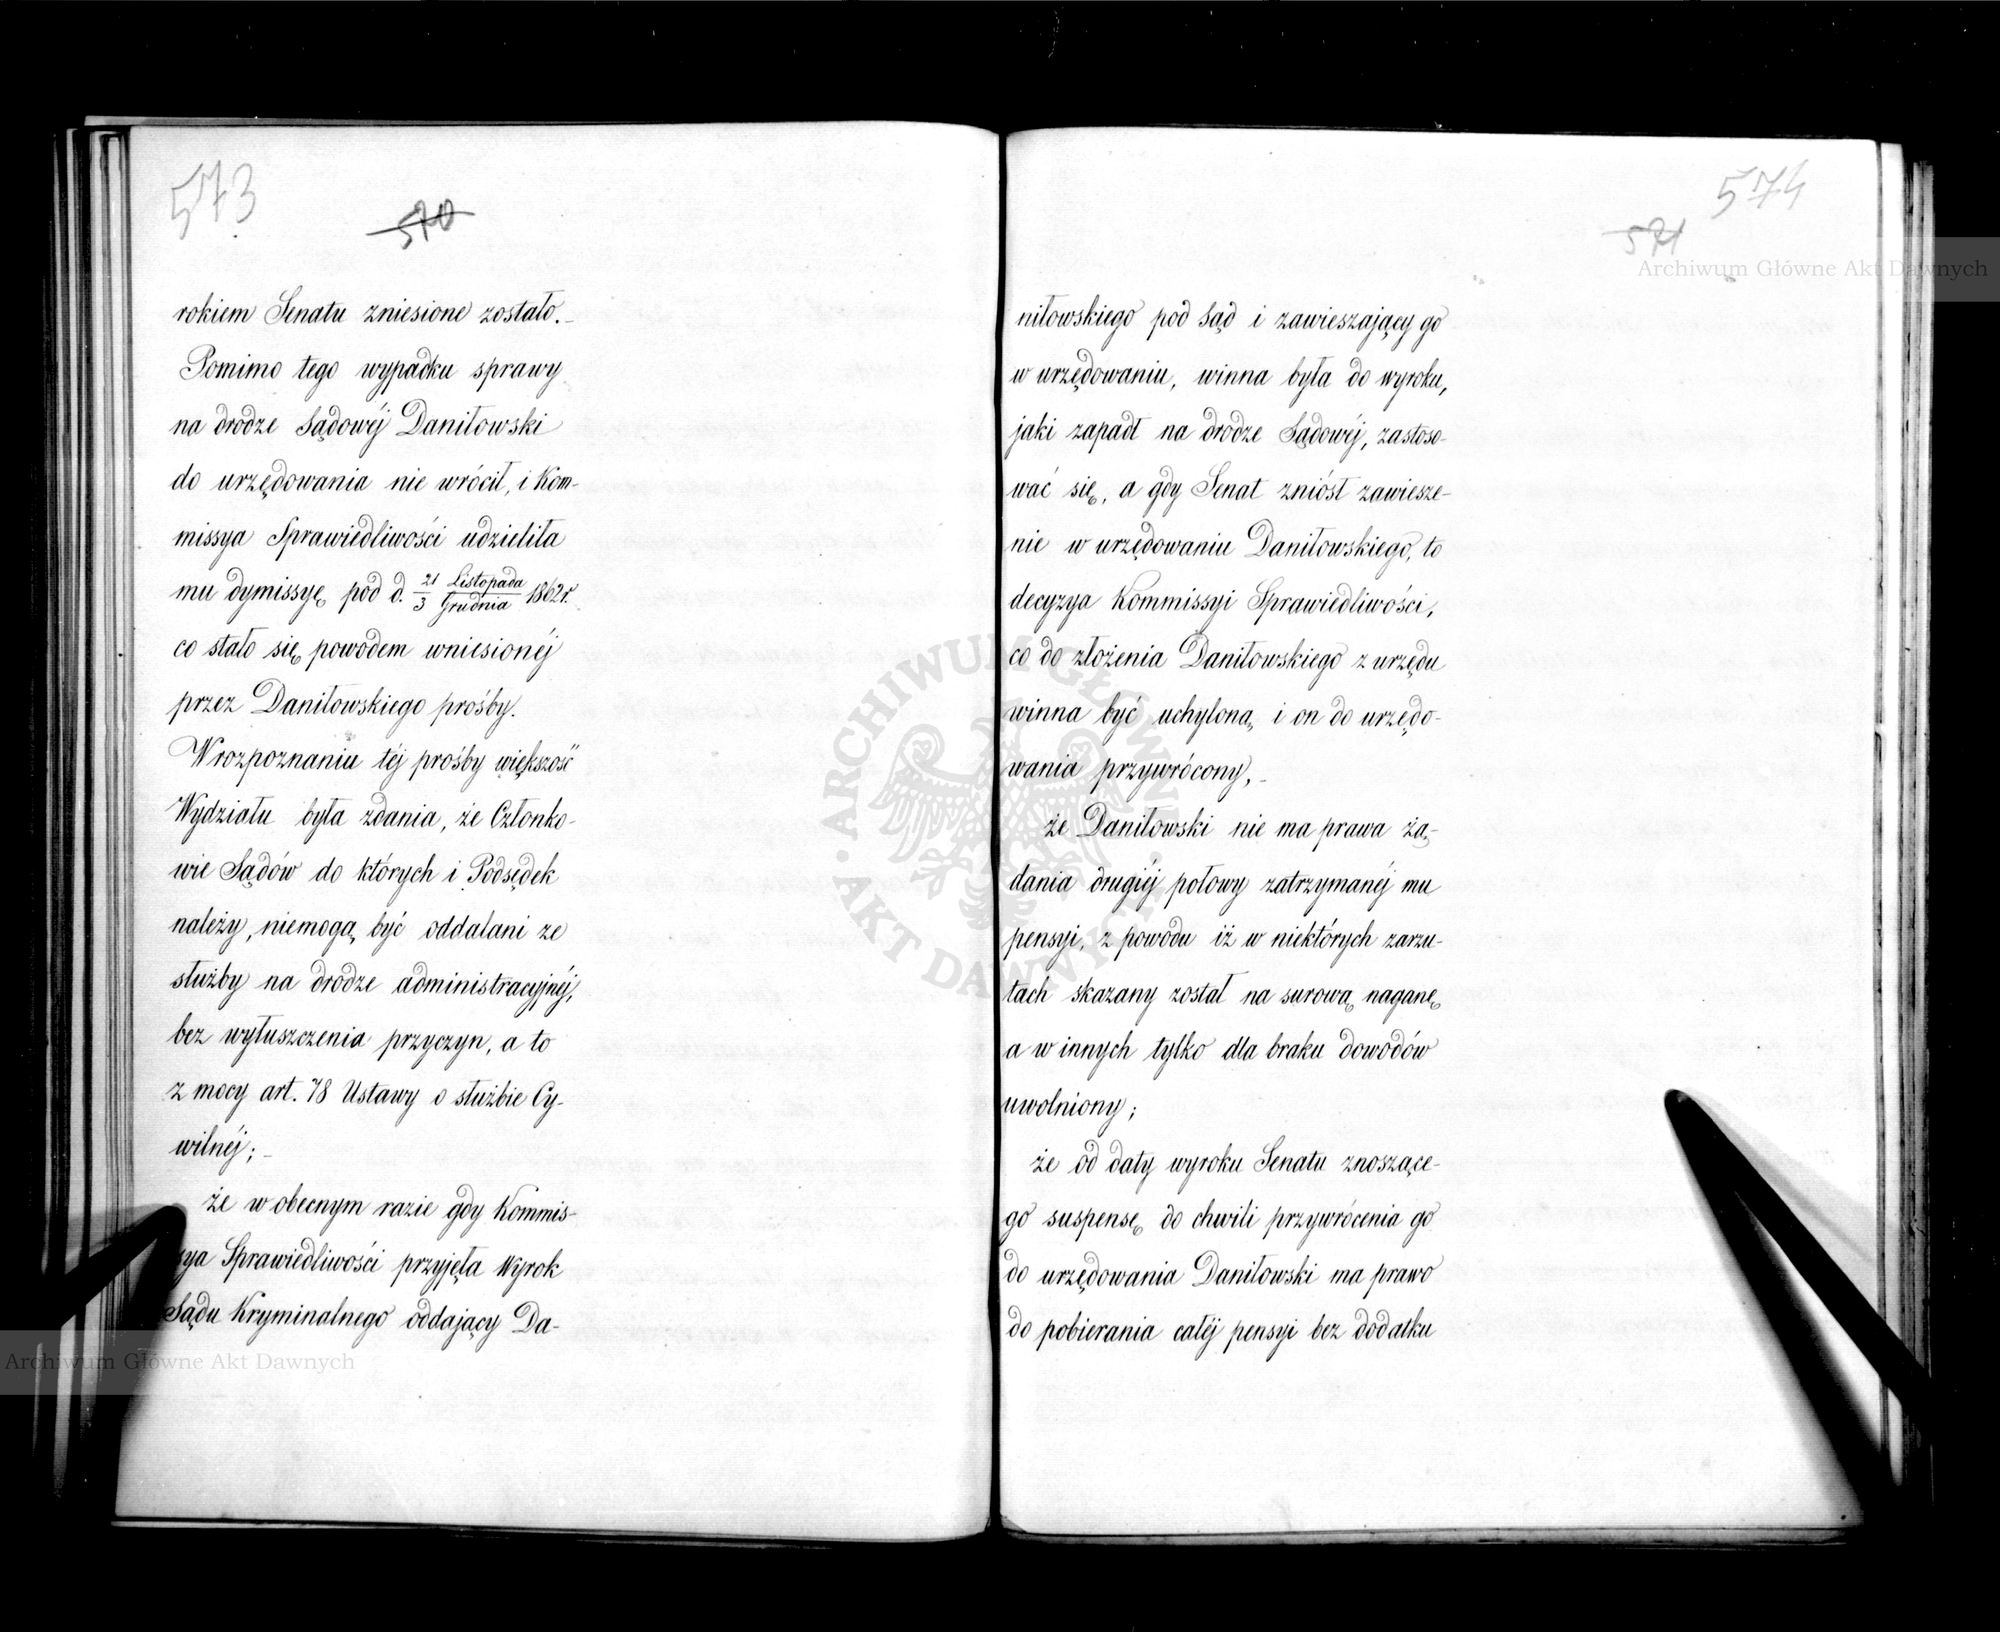 573
570
rokiem Senatu zniesione zostało.
Pomimo tego wypadku sprawy
na drodze Sądowéj Daniłowski
do urzędowania nie wrócił, i Kom-
missya Sprawiedliwości udzieliła
mu dymissyę pod d. 21/3 Listopada/Grudnia 1862 r.
co stało się powodem wniesionéj
przez Daniłowskiego prośby.
W rozpoznaniu téj prośby większość
Wydziału była zdania, że Członko-
wie Sądów do których i Podsędek
należy, niemogą być oddalani ze
służby na drodze administracyjnéj,
bez wyłuszczenia przyczyn, a to
z mocy art. 78 Ustawy o służbie Cy-
wilnéj;
że w obecnym razie gdy Kommis-
sya Sprawiedliwości przyjęła Wyrok
Sądu Kryminalnego oddający Da-
574
571
niłowskiego pod Sąd i zawieszający go
w urzędowaniu, winna była do wyroku,
jaki zapadł na drodze Sądowéj, zastoso-
wać się, a gdy Senat zniósł zawiesze-
nie w urzędowaniu Daniłowskiego, to
decyzya Kommissyi Sprawiedliwości,
co do złożenia Daniłowskiego z urzędu
winna być uchyloną, i on do urzędo-
wania przywrócony,
że Daniłowski nie ma prawa żą-
dania drugiéj połowy zatrzymanéj mu
pensyi, z powodu iż w niektórych zarzu-
tach skazany został na surową naganę
a w innych tylko dla braku dowodów
uwolniony;
że od daty wyroku Senatu znoszące-
go suspensę do chwili przywrócenia go
do urzędowania Daniłowski ma prawo
do pobierania całéj pensyi bez dodatku
Archiwum Główne Akt Dawnych
ARCHIWUM GŁÓWNE · AKT DAWNYCH ·
Archiwum Główne Akt Dawnych